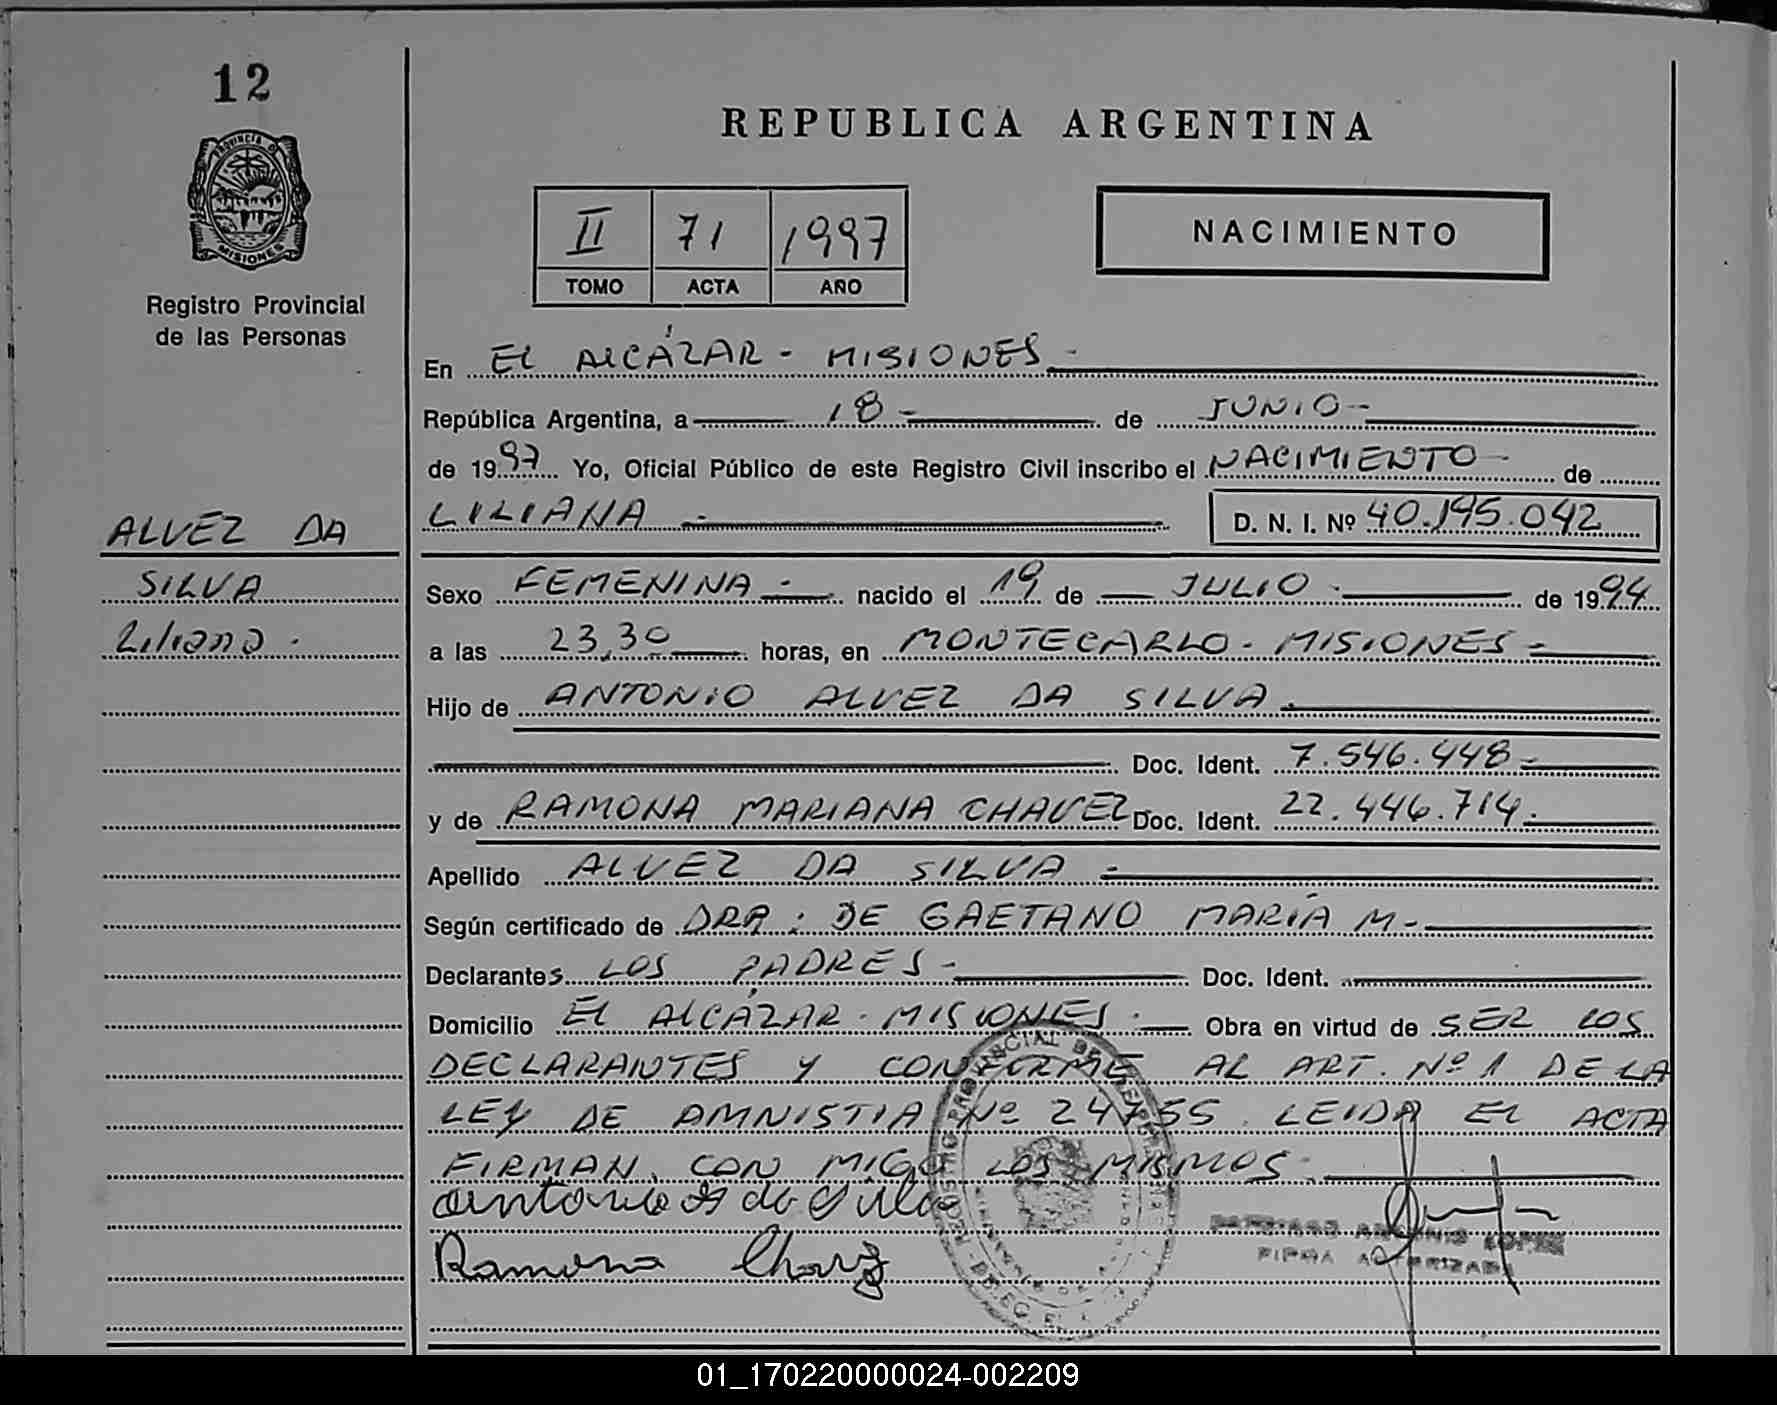 12
PROVINCIA DE
MISIONES
Registro Provincial
de las Personas
ALVEZ DA
SILVA
Liliana.
REPUBLICA ARGENTINA
II 71 1997
TOMO ACTA AÑO
NACIMIENTO
En EL ALCÁZAR - MISIONES -
República Argentina, a 18 - de JUNIO -
de 1997 Yo, Oficial Público de este Registro Civil inscribo el NACIMIENTO - de
LILIANA - D. N. I. Nº 40.195.042
Sexo FEMENINA - nacido el 19 de JULIO - de 1994
a las 23,30 horas, en MONTECARLO - MISIONES -
Hijo de ANTONIO ALVEZ DA SILVA.
Doc. Ident. 7.546.448 -
y de RAMONA MARIANA CHAVEZ Doc. Ident. 22.446.714.
Apellido ALVEZ DA SILVA -
Según certificado de DRA: DE GAETANO MARÍA M -
Declarantes LOS PADRES - Doc. Ident.
Domicilio EL ALCÁZAR - MISIONES. Obra en virtud de SER LOS
DECLARANTES Y CONFORME AL ART. Nº 1 DE LA
LEY DE AMNISTIA Nº 24755. LEIDA EL ACTA
FIRMAN, CON MIGO LOS MISMOS.
Antonio A da Silva
Ramona Chavez
ANTONIO LOPEZ
FIRMA AUTORIZADA
01_170220000024-002209